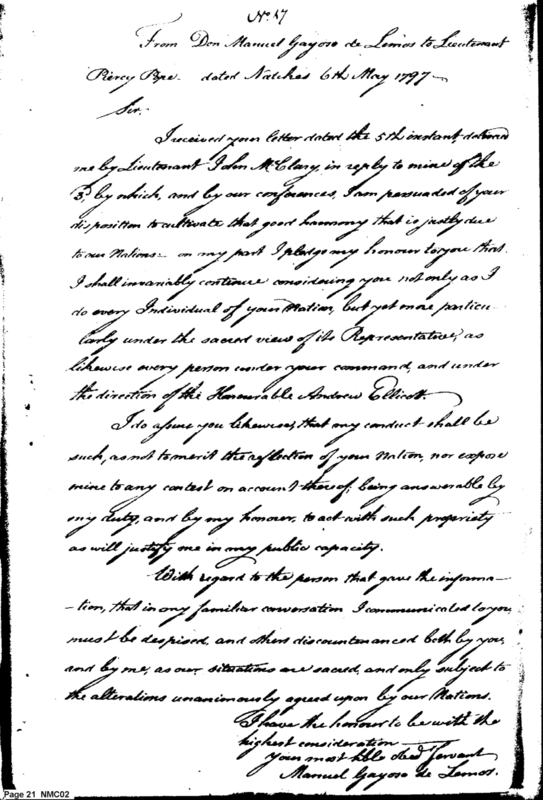 No. 17
From Don Manuel Gayoso de Lemos to Lieutenant
Piercy Pope. dated Natches 6th May 1797—
Sir.
I received your letter dated the 5th instant, delivered
me by Lieutenant John McClary, in reply to mine of the
3d. by which, and by our conferences, I am persuaded of your
disposition to cultivate that good harmony that is justly due
to our Nations— on my part I pledge my honour to you that
I shall invariably continue considering you not only as I
do every Individual of your Nation, but yet more particu-
larly under the sacred view of its Representative, as
likewise every person under your command, and under
the direction of the Honourable Andrew Ellicott.
I do assure you likewise, that my conduct shall be
such, as not to merit the reflection of your Nation, nor expose
mine to any contest on account thereof; being answerable by
my duty, and by my honour, to act with such propriety
as will justify me in my public capacity.
With regard to the person that gave the informa-
-tion, that in my familiar conversation I communicated to you,
must be despised, and others discountenanced both by you,
and by me, as our situations are sacred, and only subject to
the alterations unanimously agreed upon by our Nations.
I have the honour to be with the
highest consideration
your most hble obed. Servant
Manuel Gayoso de Lemos.
Page 21 NMC02